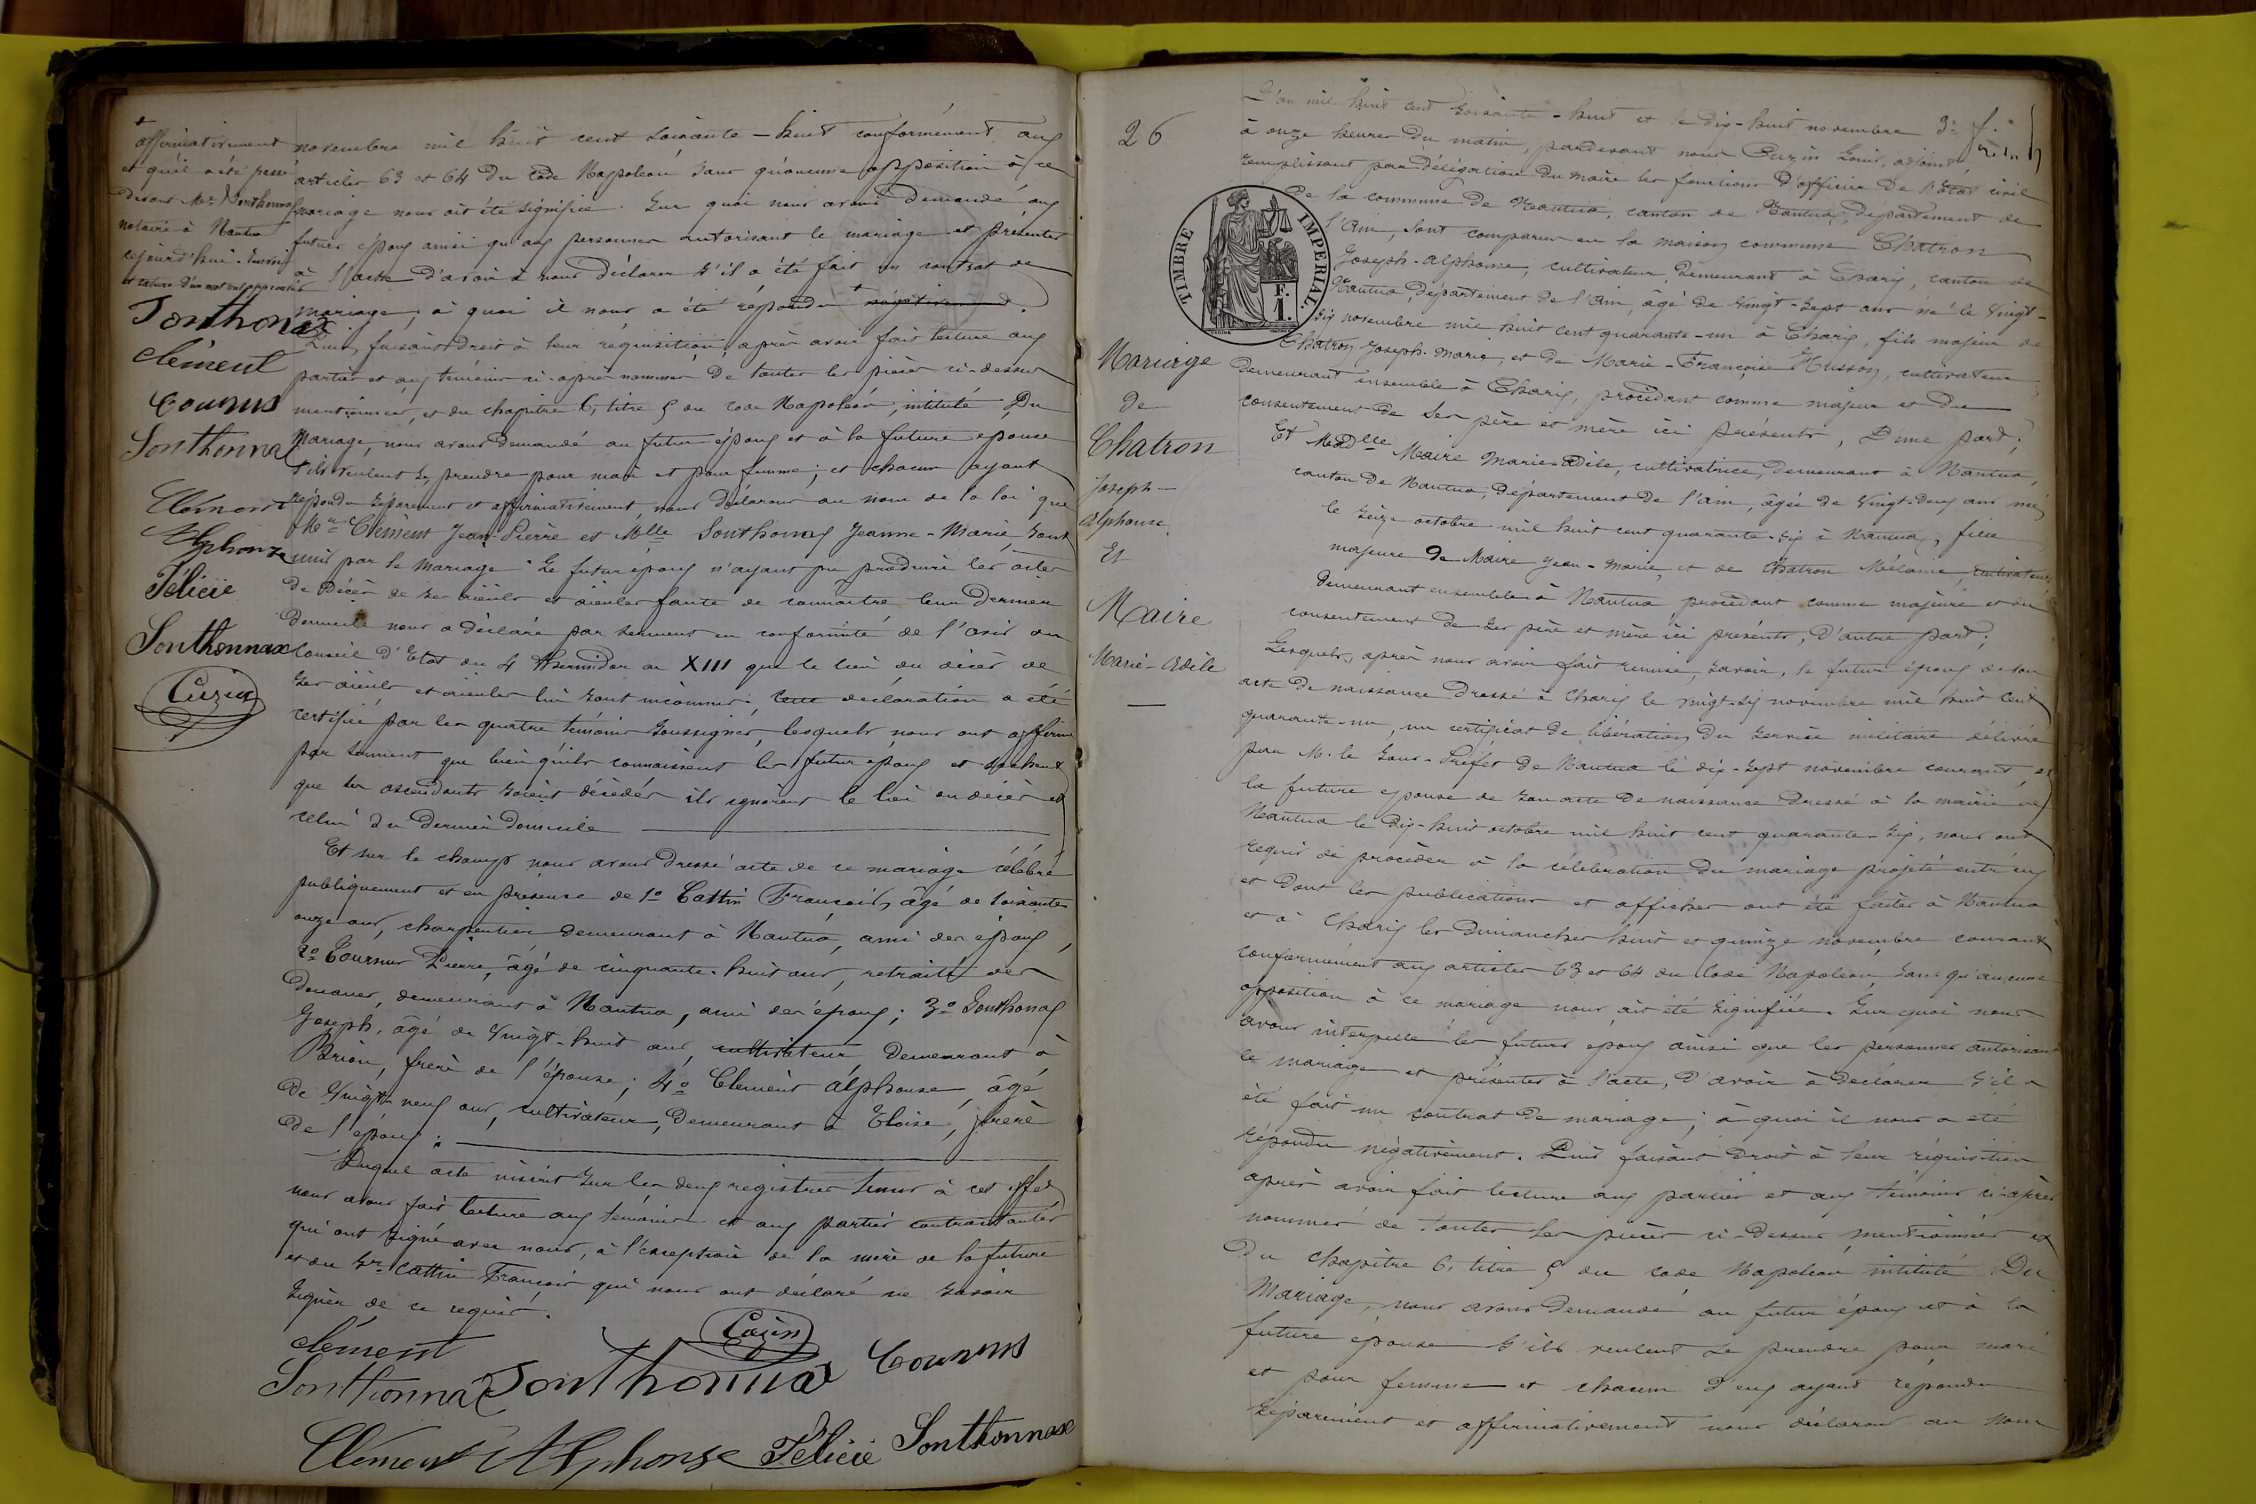 affirmativement
et qu'il a été passé
devant Me Sonthonnax
notaire à Nantua
cejourd'hui. Renvoi
et rature d'un mot nul approuvés
Sonthonnax
Clément
Cournus
Sonthonnax
Clément
Alphonse
Félicie
Sonthonnax
Cuzin
novembre mil huit cent soixante-huit conformément aux
articles 63 et 64 du Code Napoléon sans qu'aucune opposition à ce
mariage nous ait été signifiée. Sur quoi nous avons demandé aux
futurs époux ainsi qu'aux personnes autorisant le mariage et présentes
à l'acte d'avoir à nous déclarer s'il a été fait un contrat de
mariage, à quoi il nous a été répondu + négativement.
Puis, faisant droit à leur réquisition, après avoir fait lecture aux
parties et aux témoins ci-après nommés de toutes les pièces ci-dessus
mentionnées, et du chapitre 6, titre 5 du code Napoléon, intitulé Du
Mariage, nous avons demandé au futur époux et à la future épouse
s'ils veulent se prendre pour mari et pour femme; et chacun ayant
répondu séparément et affirmativement, nous déclarons au nom de la loi que
Mr Clément Jean-Pierre et Mlle Sonthonnax Jeanne-Marie sont
unis par le mariage. Le futur époux n'ayant pu produire les actes
de décès de ses aïeuls et aïeules faute de connaître leur dernier
domicile nous a déclaré par serment en conformité de l'avis du
Conseil d'Etat du 4 thermidor an XIII que le lieu du décès de
ses aïeuls et aïeules lui sont inconnus; cette déclaration a été
certifiée par les quatre témoins soussignés, lesquels nous ont affirmé
par serment que bien qu'ils connaissent les futur époux et sachent
que ses ascendants soient décédés ils ignorent le lieu du décès et
celui du dernier domicile
Et sur le champ nous avons dressé acte de ce mariage célébré
publiquement et en présence de 1o Cattin François, âgé de soixante
onze ans, charpentier demeurant à Nantua, ami des époux,
2o Cournus Pierre, âgé de cinquante-huit ans, retraité des
Douanes, demeurant à Nantua, ami des époux; 3o Sonthonnax
Joseph, âgé de vingt-huit ans, cultivateur, demeurant à
Brion, frère de l'épouse; 4o Clément Alphonse, âgé
de vingt neuf ans, cultivateur, demeurant à Eloise, frère
de l'époux.
Duquel acte inscrit sur les deux registres tenus à cet effet
nous avons fait lecture aux témoins et aux parties contractantes
qui ont signé avec nous, à l'exception de la mère de la future
et du Sr Cattin François qui nous ont déclaré ne savoir
signer de ce requis.
Clément Cuzin Cournus
Sonthonnax Sonthonnax
Clément Alphonse Félicie Sonthonnax
26
Mariage
de
Chatron
Joseph-
Alphonse
Et
Maire
Marie-Adèle
L'an mil huit cent soixante-huit et le dix-huit novembre
à onze heures du matin, pardevant nous Cuzin Louis, adjoint
remplissant par délégation du maire les fonctions d'officier de l'Etat civil
de la commune de Nantua, canton de Nantua, département de
l'Ain, sont comparus en la maison commune Chatron
Joseph-Alphonse, cultivateur, demeurant à Charix, canton de
Nantua, département de l'Ain, âgé de vingt-sept ans né le vingt-
six novembre mil huit cent quarante-un à Charix, fils majeur de
Chatron Joseph-Marie, et de Marie-Françoise Husson, cultivateurs
demeurant ensemble à Charix, procédant comme majeur et du
consentement de ses père et mère ici présents, D'une part;
Et Madlle Maire Marie-Adèle, cultivatrice, demeurant à Nantua,
canton de Nantua, Département de l'Ain, âgée de vingt-deux ans née
le seize octobre mil huit cent quarante-six à Nantua, fille
majeure de Maire Jean-Marie, et de Chatron Mélanie, cultivateurs
demeurant ensemble à Nantua procédant comme majeure et du
consentement de ses père et mère ici présents, D'autre part;
Lesquels, après nous avoir fait remise, savoir, le futur époux de son
acte de naissance dressé à Charix le vingt-six novembre mil huit cent
quarante-un, un certificat de libération du service militaire délivré
par M. le Sous-Préfet de Nantua le dix-sept novembre courant, et
la future épouse de son acte de naissance dressé à la mairie de
Nantua le dix-huit octobre mil huit cent quarante-six, nous ont
requis de procéder à la célébration du mariage projeté entr'eux
et dont les publications et affiches ont été faites à Nantua
et à Charix les dimanches huit et quinze novembre courant
conformément aux articles 63 et 64 du Code Napoléon, sans qu'aucune
opposition à ce mariage nous ait été signifiée. Sur quoi nous
avons interpellé les futurs époux ainsi que les personnes autorisant
le mariage et présentes à l'acte, d'avoir à déclarer s'il a
été fait un contrat de mariage; à quoi il nous a été
répondu négativement. Puis faisant droit à leur réquisition
après avoir fait lecture aux parties et aux témoins ci-après
nommés de toutes les pièces ci-dessus mentionnées et
du chapitre 6, titre 5 du code Napoléon intitulé Du
Mariage, nous avons demandé au futur époux et à la
future épouse s'ils veulent se prendre pour mari
et pour femme et chacun d'eux ayant répondu
séparément et affirmativement nous déclarons au nom
TIMBRE IMPERIAL
F.
1.